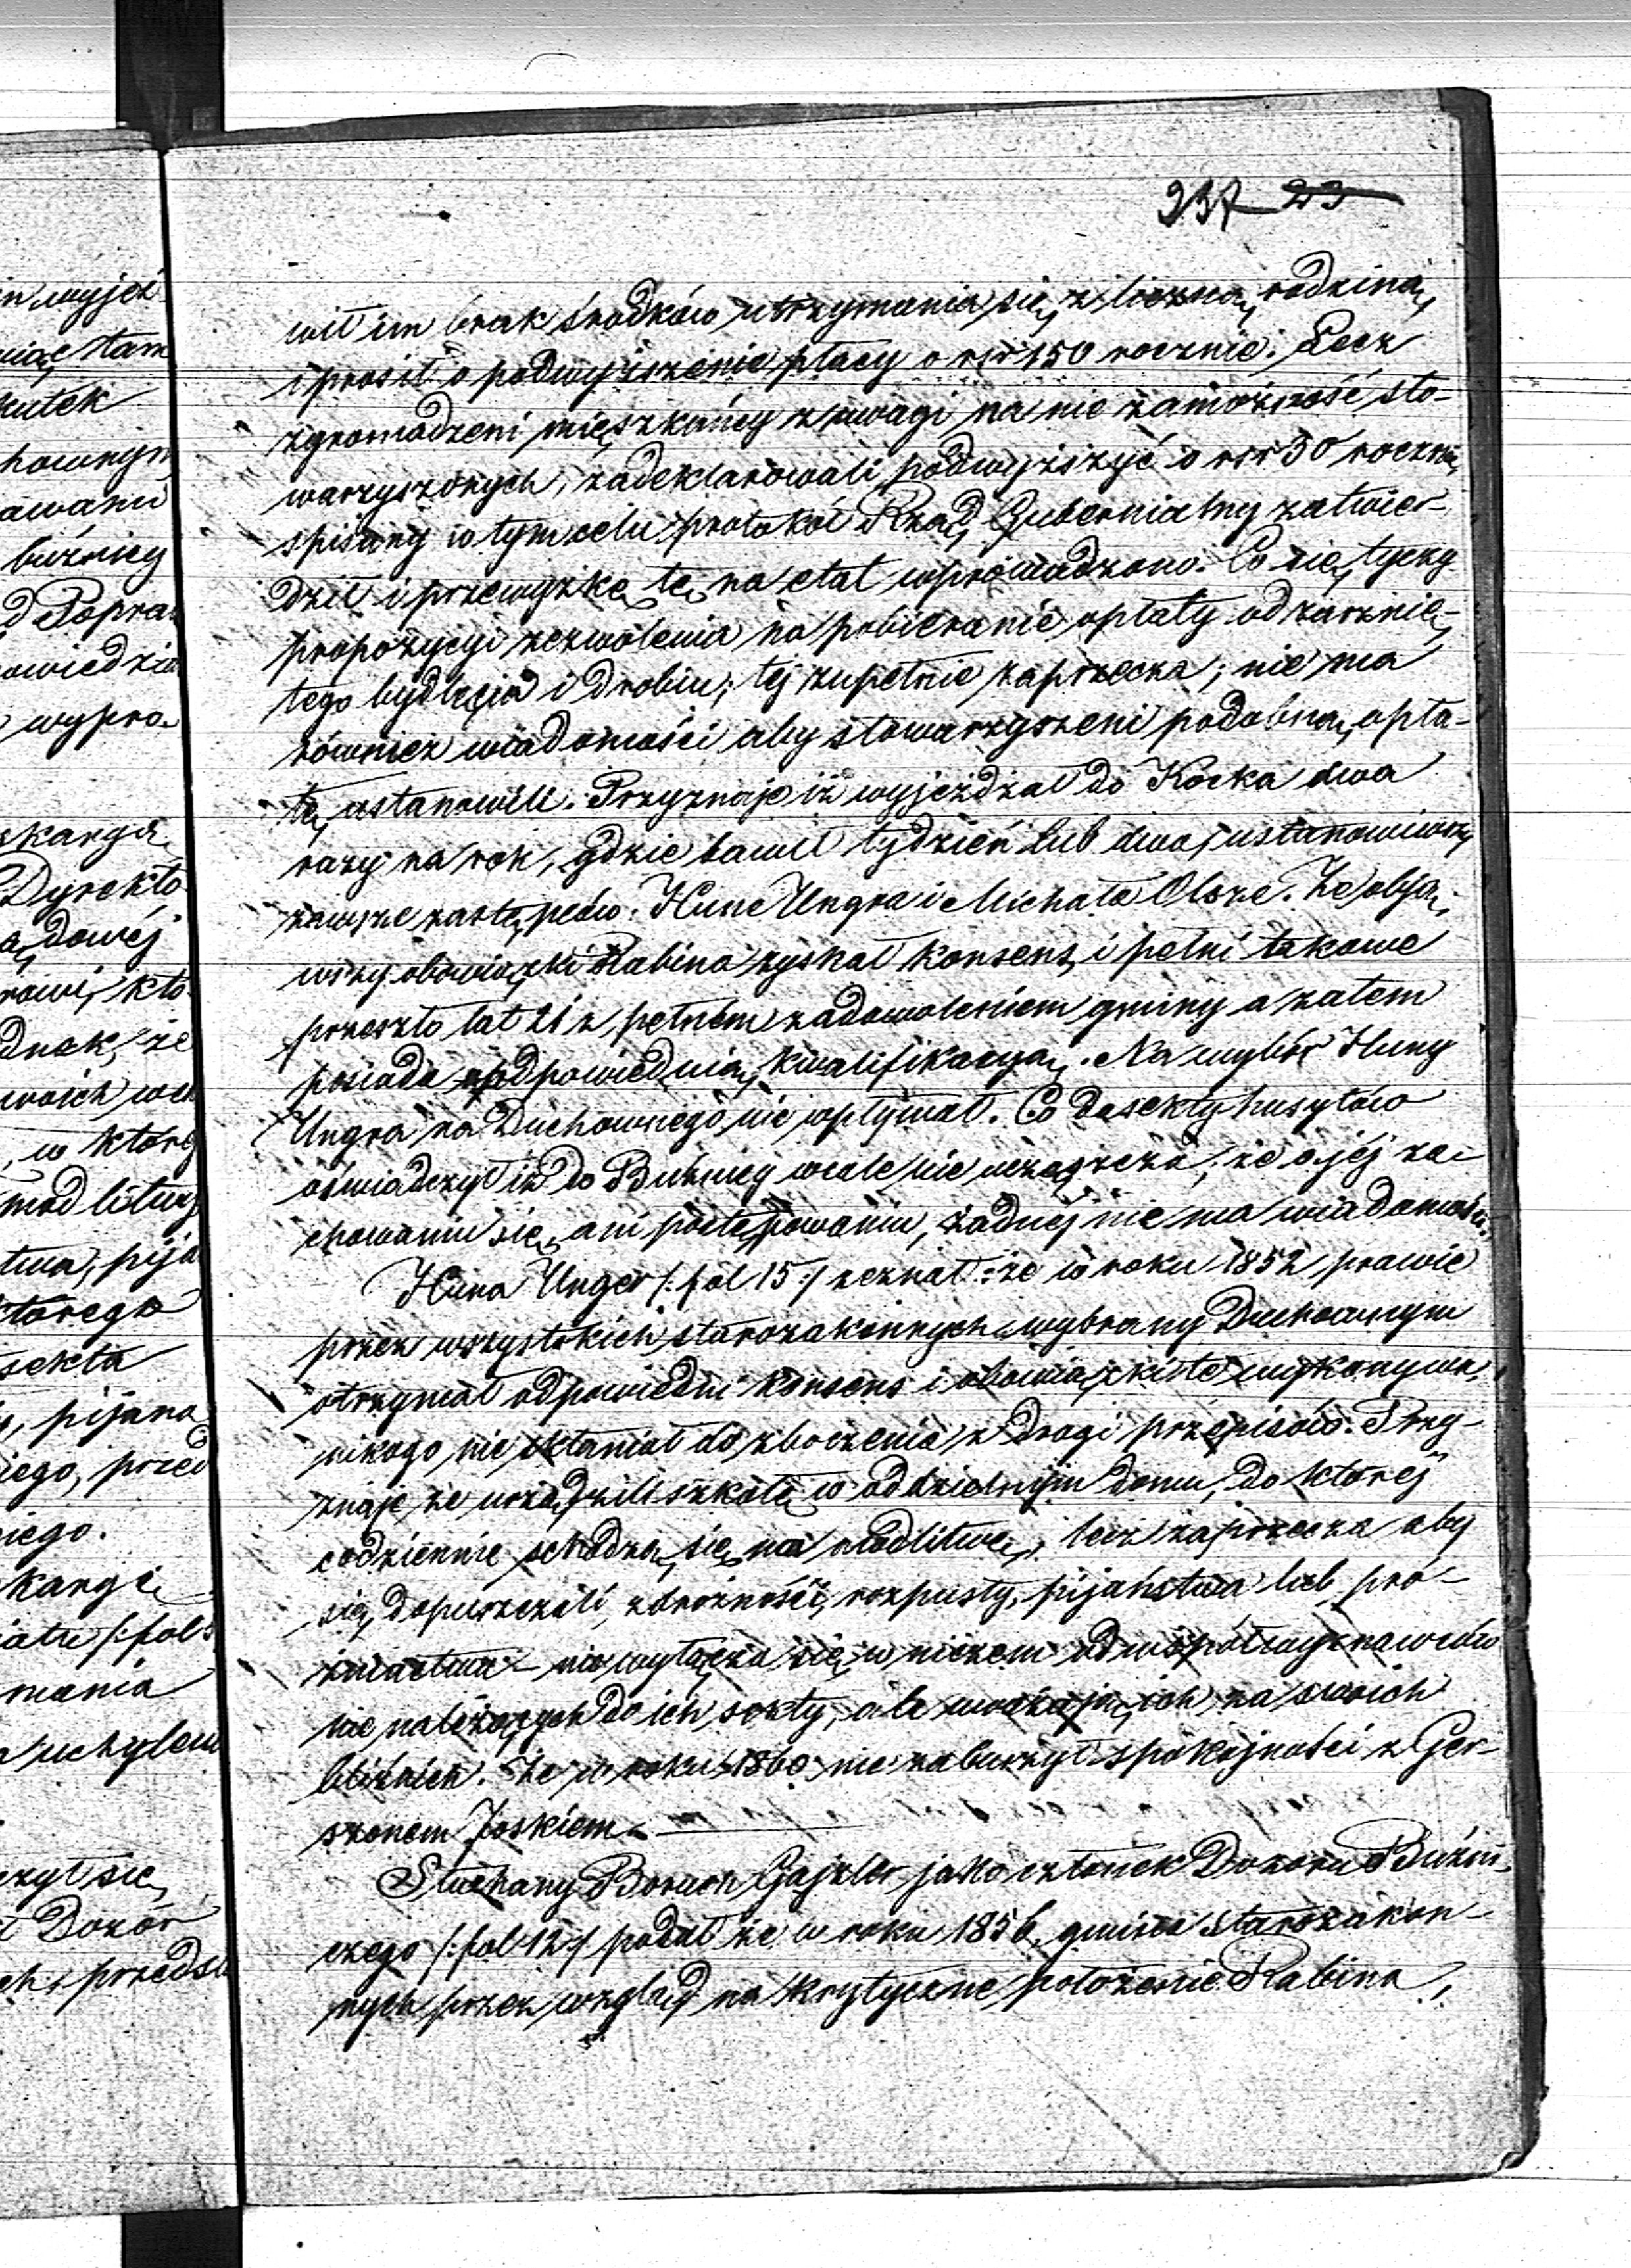 237 23
wił im brak środków utrzymania się z liczną rodziną
i prosił o podwyższenie płacy o rsr 150 rocznie. Lecz
zgromadzeni mieszkańcy z uwagi na nie zamożność sto-
warzyszonych, zadeklarowali podwyższyć o rsr 30 rocznie,
spisany w tym celu protokół Rząd Gubernialny zatwier-
dził i przewyżkę tę na etat wprowadzono. Co się tyczy
propozycyi zezwolenia na pobieranie opłaty od zarznię-
tego bydlęcia i drobiu; tej zupełnie zaprzecza; nie ma
również wiadomości aby stowarzyszeni podobną opła-
tę ustanowili. Przyznaje iż wyjeżdżał do Kocka dwa
razy na rok, gdzie bawił tydzień lub dwa, ustanowiwszy
zawsze zastępców: Hune Ungra i Michała Olsze. Że objąw-
wszy obowiązki Rabina zyskał konsens, i pełni takowe
przeszło lat 21 z pełnem zadowoleniem gminy a zatem
posiada odpowiednią kwalifikacyą. Na wybór Huny
Ungra na Duchownego nie wpływał. Co do sekty husytów
oświadczył iż do Bużnicy wcale nie uczęszcza, że o jéj za-
chowaniu się, ani postępowaniu, żadnéj nie ma wiadomości.
Huna Unger /: fol 15 :/ zeznał: że w roku 1852 prawie
przez wszystkich starozakonnych wybrany Duchownym
otrzymał odpowiedni konsens i obowiązki te wykonywa,
nikogo nie skłaniał do zboczenia z drogi przepisów. Przy-
znaje że urządzili szkołę w oddzielnym domu, do któréj
codziennie schodzą się na modlitwę; lecz zaprzecza aby
się dopuszczali zdrożności, rozpusty, pijaństwa lub pró-
żniactwa – nie wyłącza się w niczem od współwyznawców
nie należących do ich sekty, ale uważają ich za swoich
bliźnich. Że w roku 1860 nie zaburzył spokojności z Ger-
szonem Joskiem. –
Słuchany Boruch Gajzler jako członek Dozoru Bużni-
czego /: fol 12 :/ podał że w roku 1856 gmina starozakon-
nych przez wzgląd na krytyczne położenie Rabina,